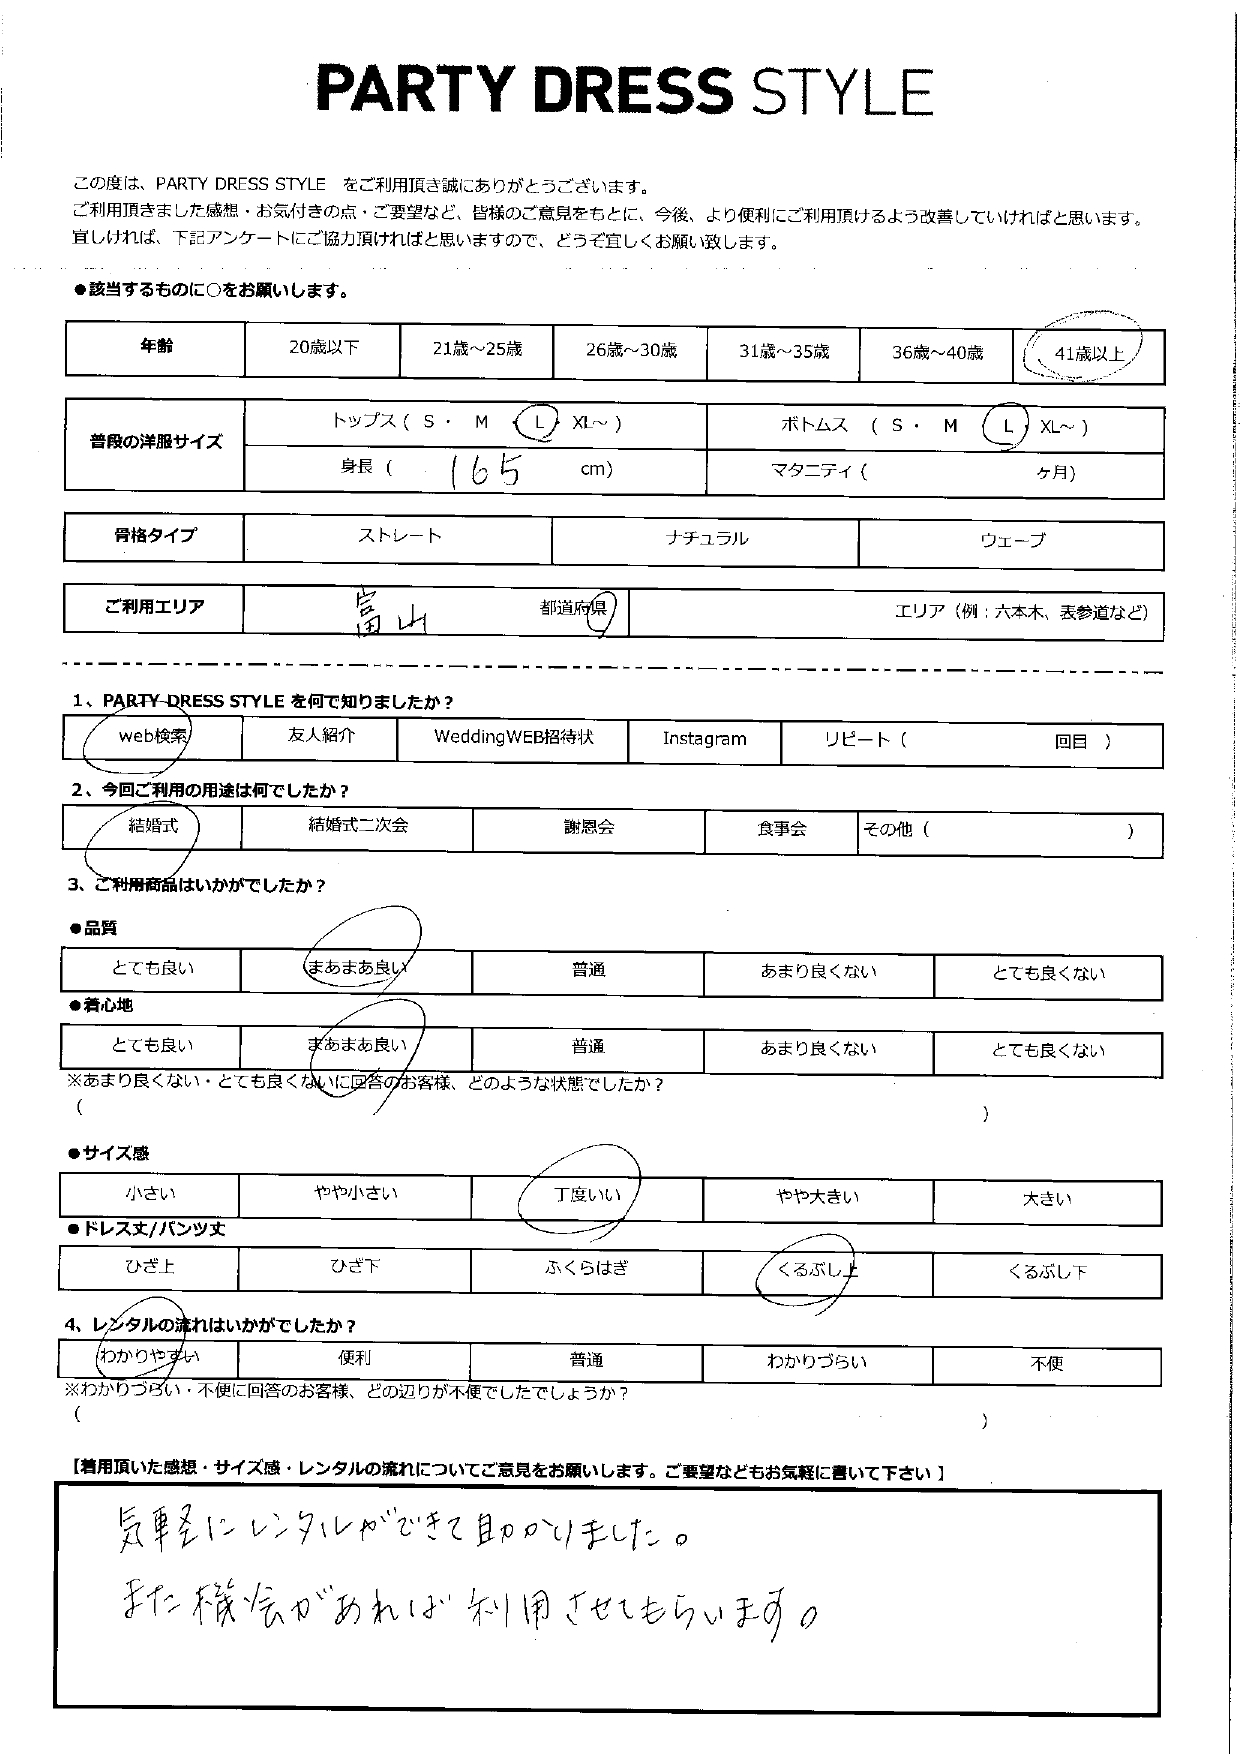 PARTY DRESS STYLE
この度は、PARTY DRESS STYLE をご利用頂き誠にありがとうございます。
ご利用頂きました感想・お気付きの点・ご要望など、皆様のご意見をもとに、今後、より便利にご利用頂けるよう改善していければと思います。
宜しければ、下記アンケートにご協力頂ければと思いますので、どうぞ宜しくお願い致します。
●該当するものに○をお願いします。
年齢 20歳以下 21歳～25歳 26歳～30歳 31歳～35歳 36歳～40歳 41歳以上
普段の洋服サイズ トップス ( S ・ M ・ L ・ XL～ ) ボトムス ( S ・ M ・ L ・ XL～ )
身長 ( 165 cm) マタニティ ( ヶ月)
骨格タイプ ストレート ナチュラル ウェーブ
ご利用エリア 富山 都道府県 エリア（例：六本木、表参道など）
1、PARTY DRESS STYLE を何で知りましたか？
web検索 友人紹介 WeddingWEB招待状 Instagram リピート ( 回目 )
2、今回ご利用の用途は何でしたか？
結婚式 結婚式二次会 謝恩会 食事会 その他 ( )
3、ご利用商品はいかがでしたか？
●品質
とても良い まあまあ良い 普通 あまり良くない とても良くない
●着心地
とても良い まあまあ良い 普通 あまり良くない とても良くない
※あまり良くない・とても良くないに回答のお客様、どのような状態でしたか？
( )
●サイズ感
小さい やや小さい 丁度いい やや大きい 大きい
●ドレス丈/パンツ丈
ひざ上 ひざ下 ふくらはぎ くるぶし上 くるぶし下
4、レンタルの流れはいかがでしたか？
わかりやすい 便利 普通 わかりづらい 不便
※わかりづらい・不便に回答のお客様、どの辺りが不便でしたでしょうか？
( )
【着用頂いた感想・サイズ感・レンタルの流れについてご意見をお願いします。ご要望などもお気軽に書いて下さい】
気軽にレンタルができて助かりました。
また機会があれば利用させてもらいます。